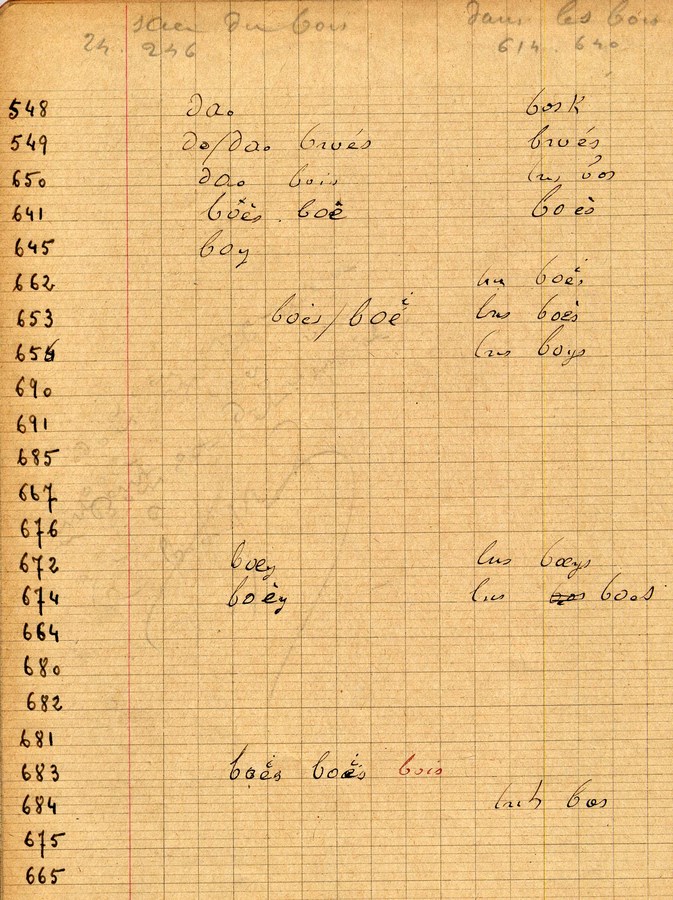 du bois dans les bois
24. 246 614. 640
548 da. bosk
549 do/da. brués brués
650 da. bois
641 boès. boè boès
645 boy
662 boès
653 boès/boè lus boès
654 lus boys
690
691
685
667
676
672 boey lus bœys
674 boèy lus boos
664
680
682
681
683 boès boès bois
684 bos
675
665